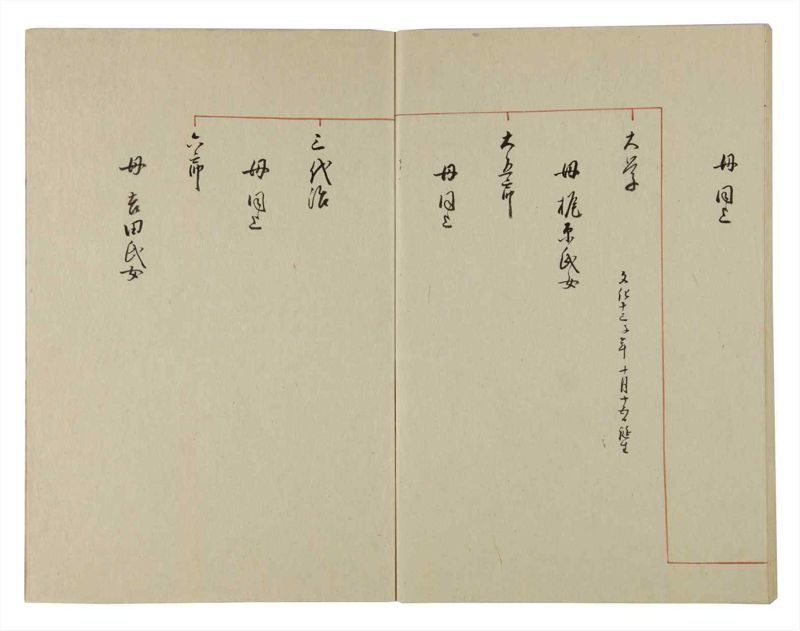 母同上
大学
文化十三子年十月十五日誕生
母梶原氏女
大五郎
母同上
三代治
母同上
六郎
母吉田氏女